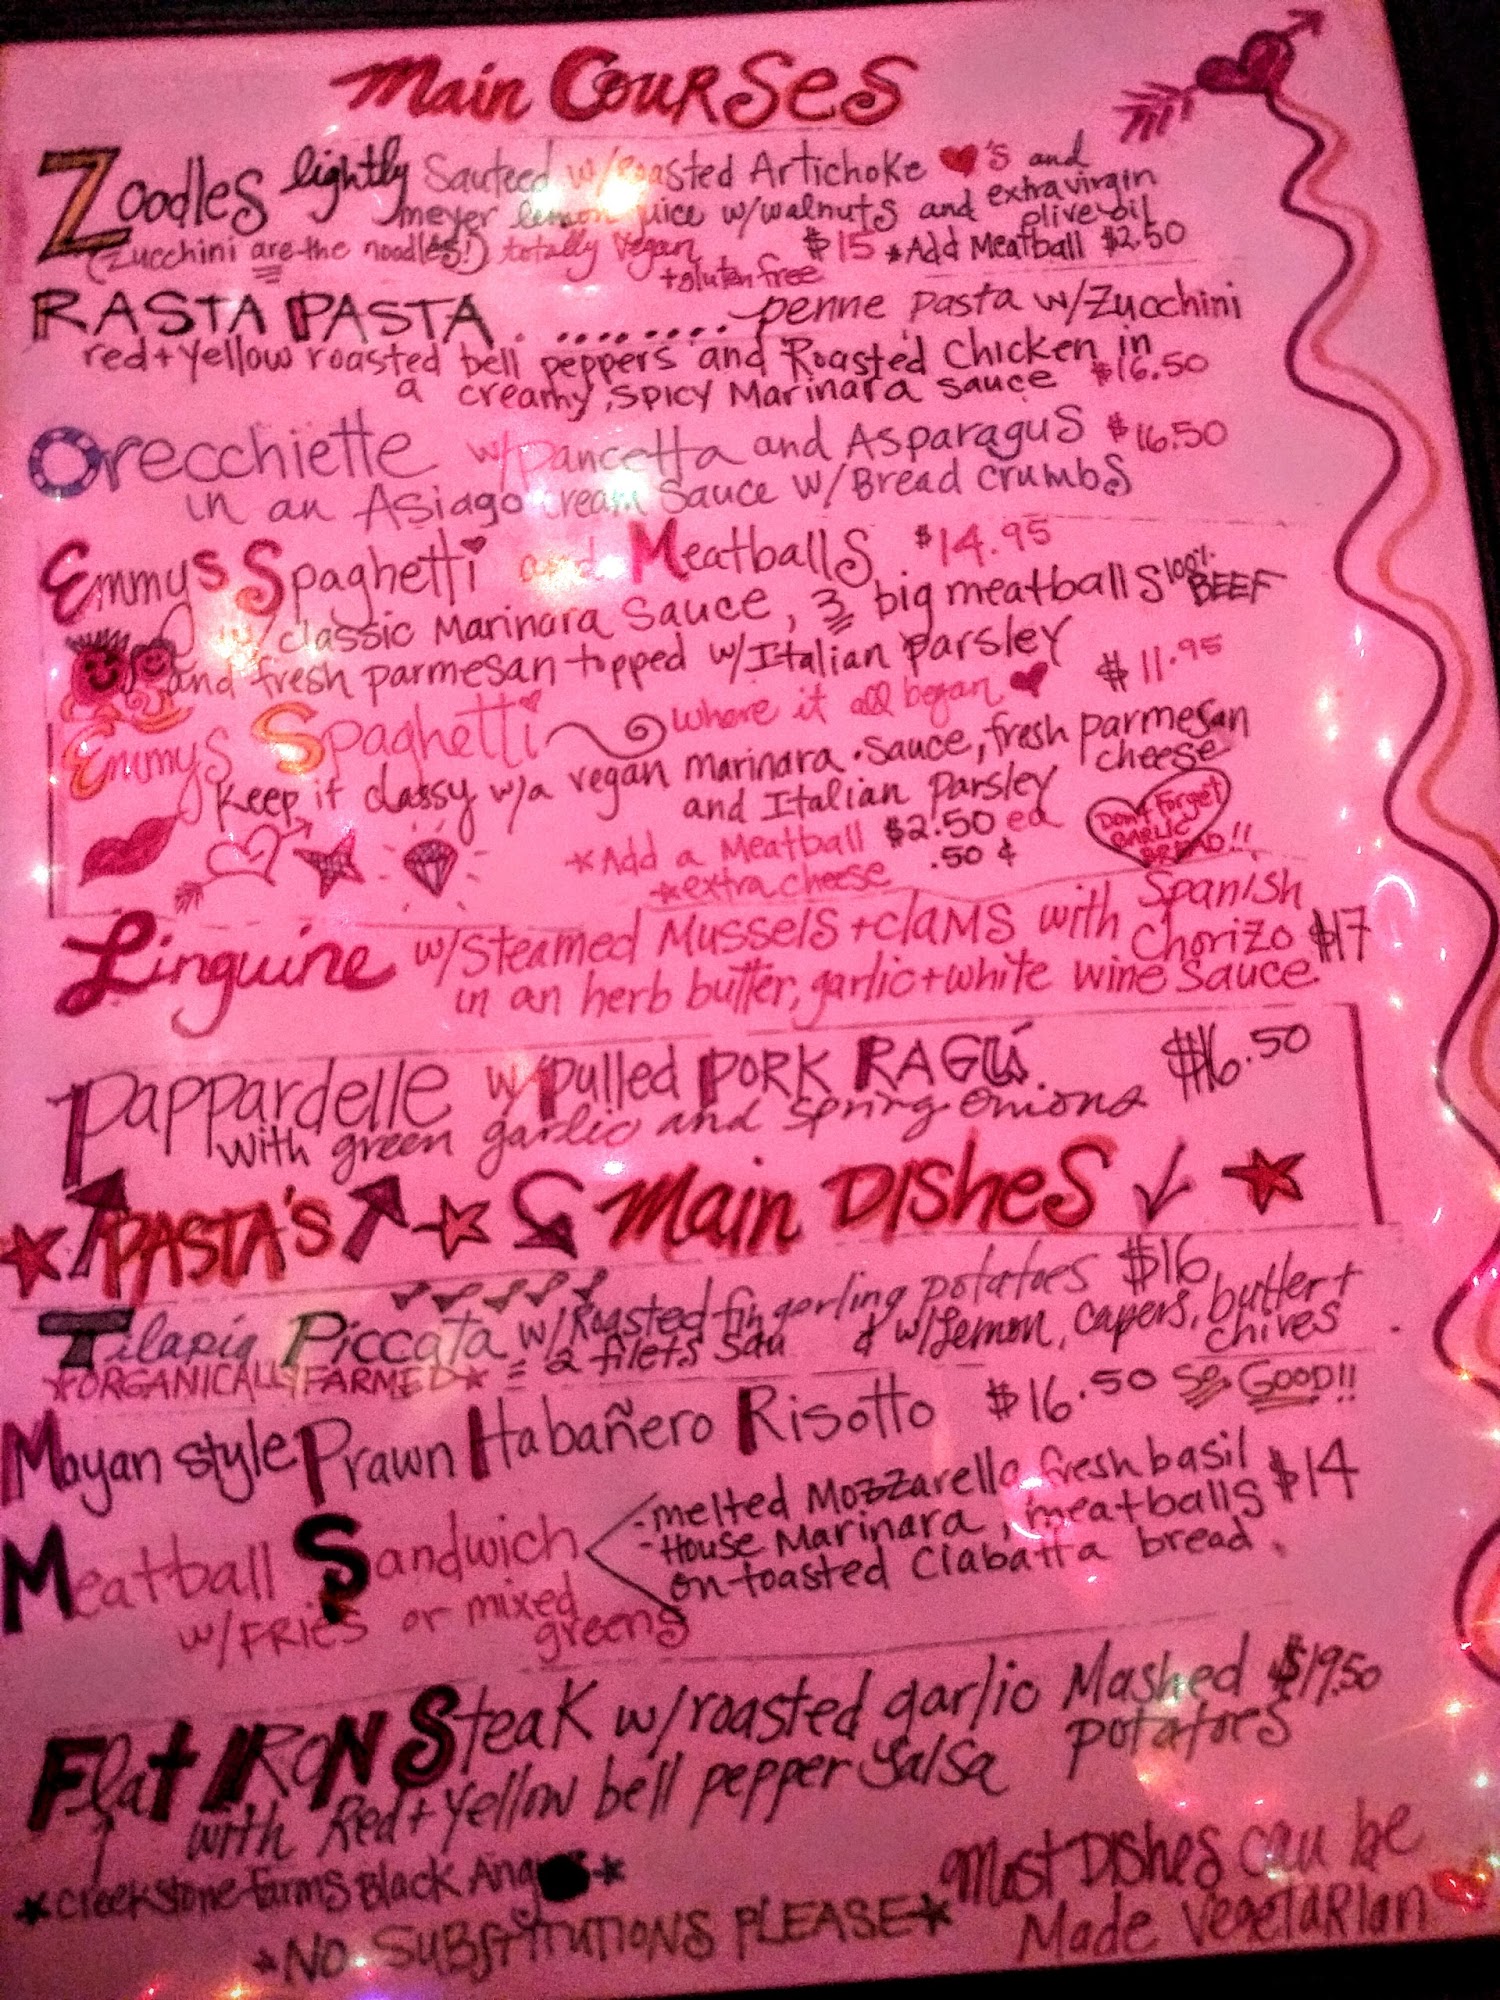 Main Courses
Zoodles lightly Sauteed w/roasted Artichoke ♥'s and
meyer lemon juice w/walnuts and extra virgin olive oil
(Zucchini are the noodles!) totally Vegan + gluten free $15 *Add Meatball $2.50
RASTA PASTA . ........penne pasta w/Zucchini
red+yellow roasted bell peppers and Roasted Chicken in
a creamy, SPICY Marinara sauce $16.50
Orecchiette w/pancetta and Asparagus $16.50
in an Asiago cream Sauce w/Bread crumbs
Emmys Spaghetti and Meatballs $14.95
w/classic Marinara Sauce, 3 big meatballs 100% BEEF
and fresh parmesan topped w/Italian parsley
Emmys Spaghetti where it all began ♥ $11.95
keep it classy w/a vegan marinara sauce, fresh parmesan cheese
and Italian Parsley
*Add a Meatball $2.50 ea
*extra cheese .50 ¢
Don't Forget
GARLIC
BREAD!!
Linguine w/Steamed Mussels + clams with Spanish Chorizo $17
in an herb butter, garlic+white wine Sauce
Pappardelle w/Pulled PORK RAGÚ $16.50
with green garlic and spring onions
PASTA'S Main Dishes
Tilapia Piccata w/Roasted fingerling potatoes $16
*ORGANICALLY FARMED* = 2 filets w/Lemon, capers, butter+ chives
Mayan style Prawn Habañero Risotto $16.50 So GOOD!!
Meatball Sandwich - melted Mozzarella, fresh basil $14
- House Marinara, meatballs
on toasted Ciabatta bread.
w/FRIES or mixed greens
Flat IRON Steak w/roasted garlic Mashed potatoes $19.50
with Red+Yellow bell pepper Salsa
*Creekstone Farms Black Angus*
*NO SUBSTITUTIONS PLEASE*
Most Dishes can be
Made Vegetarian